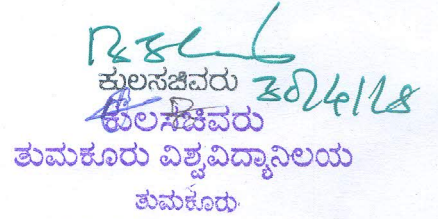 ಕುಲಸಚಿವರು
30/4/18
ಕುಲಸಚಿವರು
ತುಮಕೂರು ವಿಶ್ವವಿದ್ಯಾನಿಲಯ
ತುಮಕೂರು